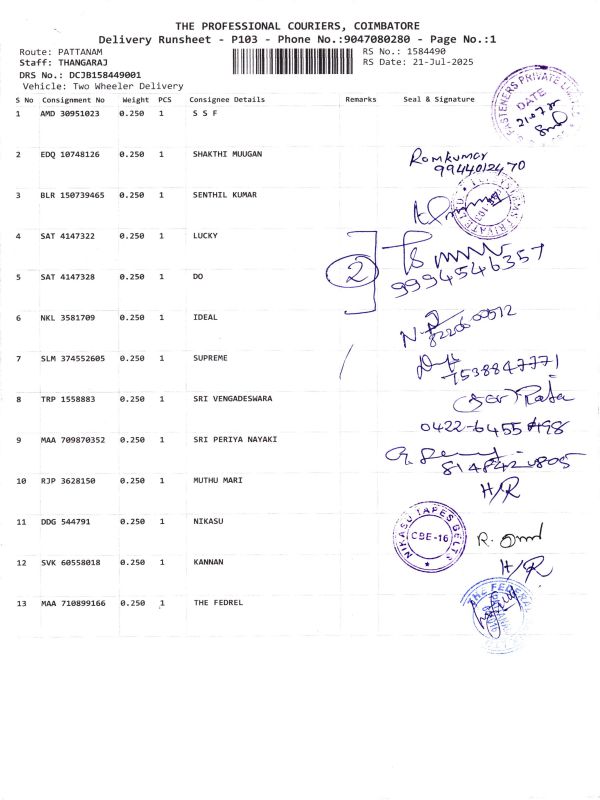 THE PROFESSIONAL COURIERS, COIMBATORE
Delivery Runsheet - P103 - Phone No.:9047080280 - Page No.:1
Route: PATTANAM
RS No.: 1584490
Staff: THANGARAJ
RS Date: 21-Jul-2025
DRS No.: DCJB158449001
Vehicle: Two Wheeler Delivery
S No Consignment No Weight PCS Consignee Details Remarks Seal & Signature
FASTENERS PRIVATE
DATE
1 AMD 30951023 0.250 1 S S F
2 EDQ 10748126 0.250 1 SHAKTHI MUUGAN Romkumar
9944012470
3 BLR 150739465 0.250 1 SENTHIL KUMAR
4 SAT 4147322 0.250 1 LUCKY
2
9994546357
5 SAT 4147328 0.250 1 DO
6 NKL 3581709 0.250 1 IDEAL
7 SLM 374552605 0.250 1 SUPREME
7538847771
8 TRP 1558883 0.250 1 SRI VENGADESWARA
0422-6455498
9 MAA 709870352 0.250 1 SRI PERIYA NAYAKI
10 RJP 3628150 0.250 1 MUTHU MARI H/R
11 DDG 544791 0.250 1 NIKASU
NIKASU TAPES BELTS
CBE-16
R.
12 SVK 60558018 0.250 1 KANNAN H/R
13 MAA 710899166 0.250 1 THE FEDREL
THE FEDERAL